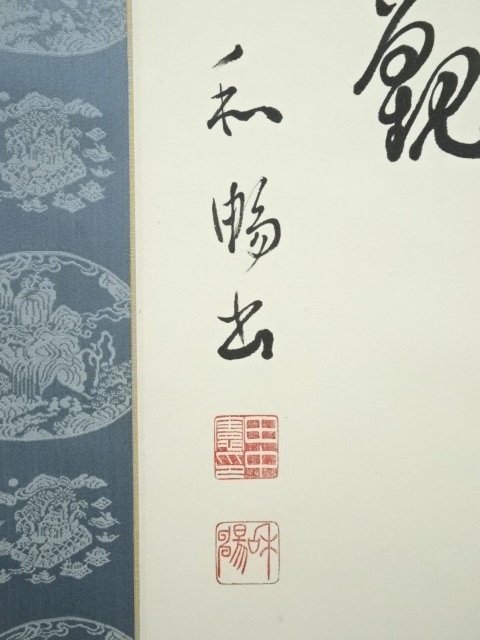 觀
和暢書
和暢